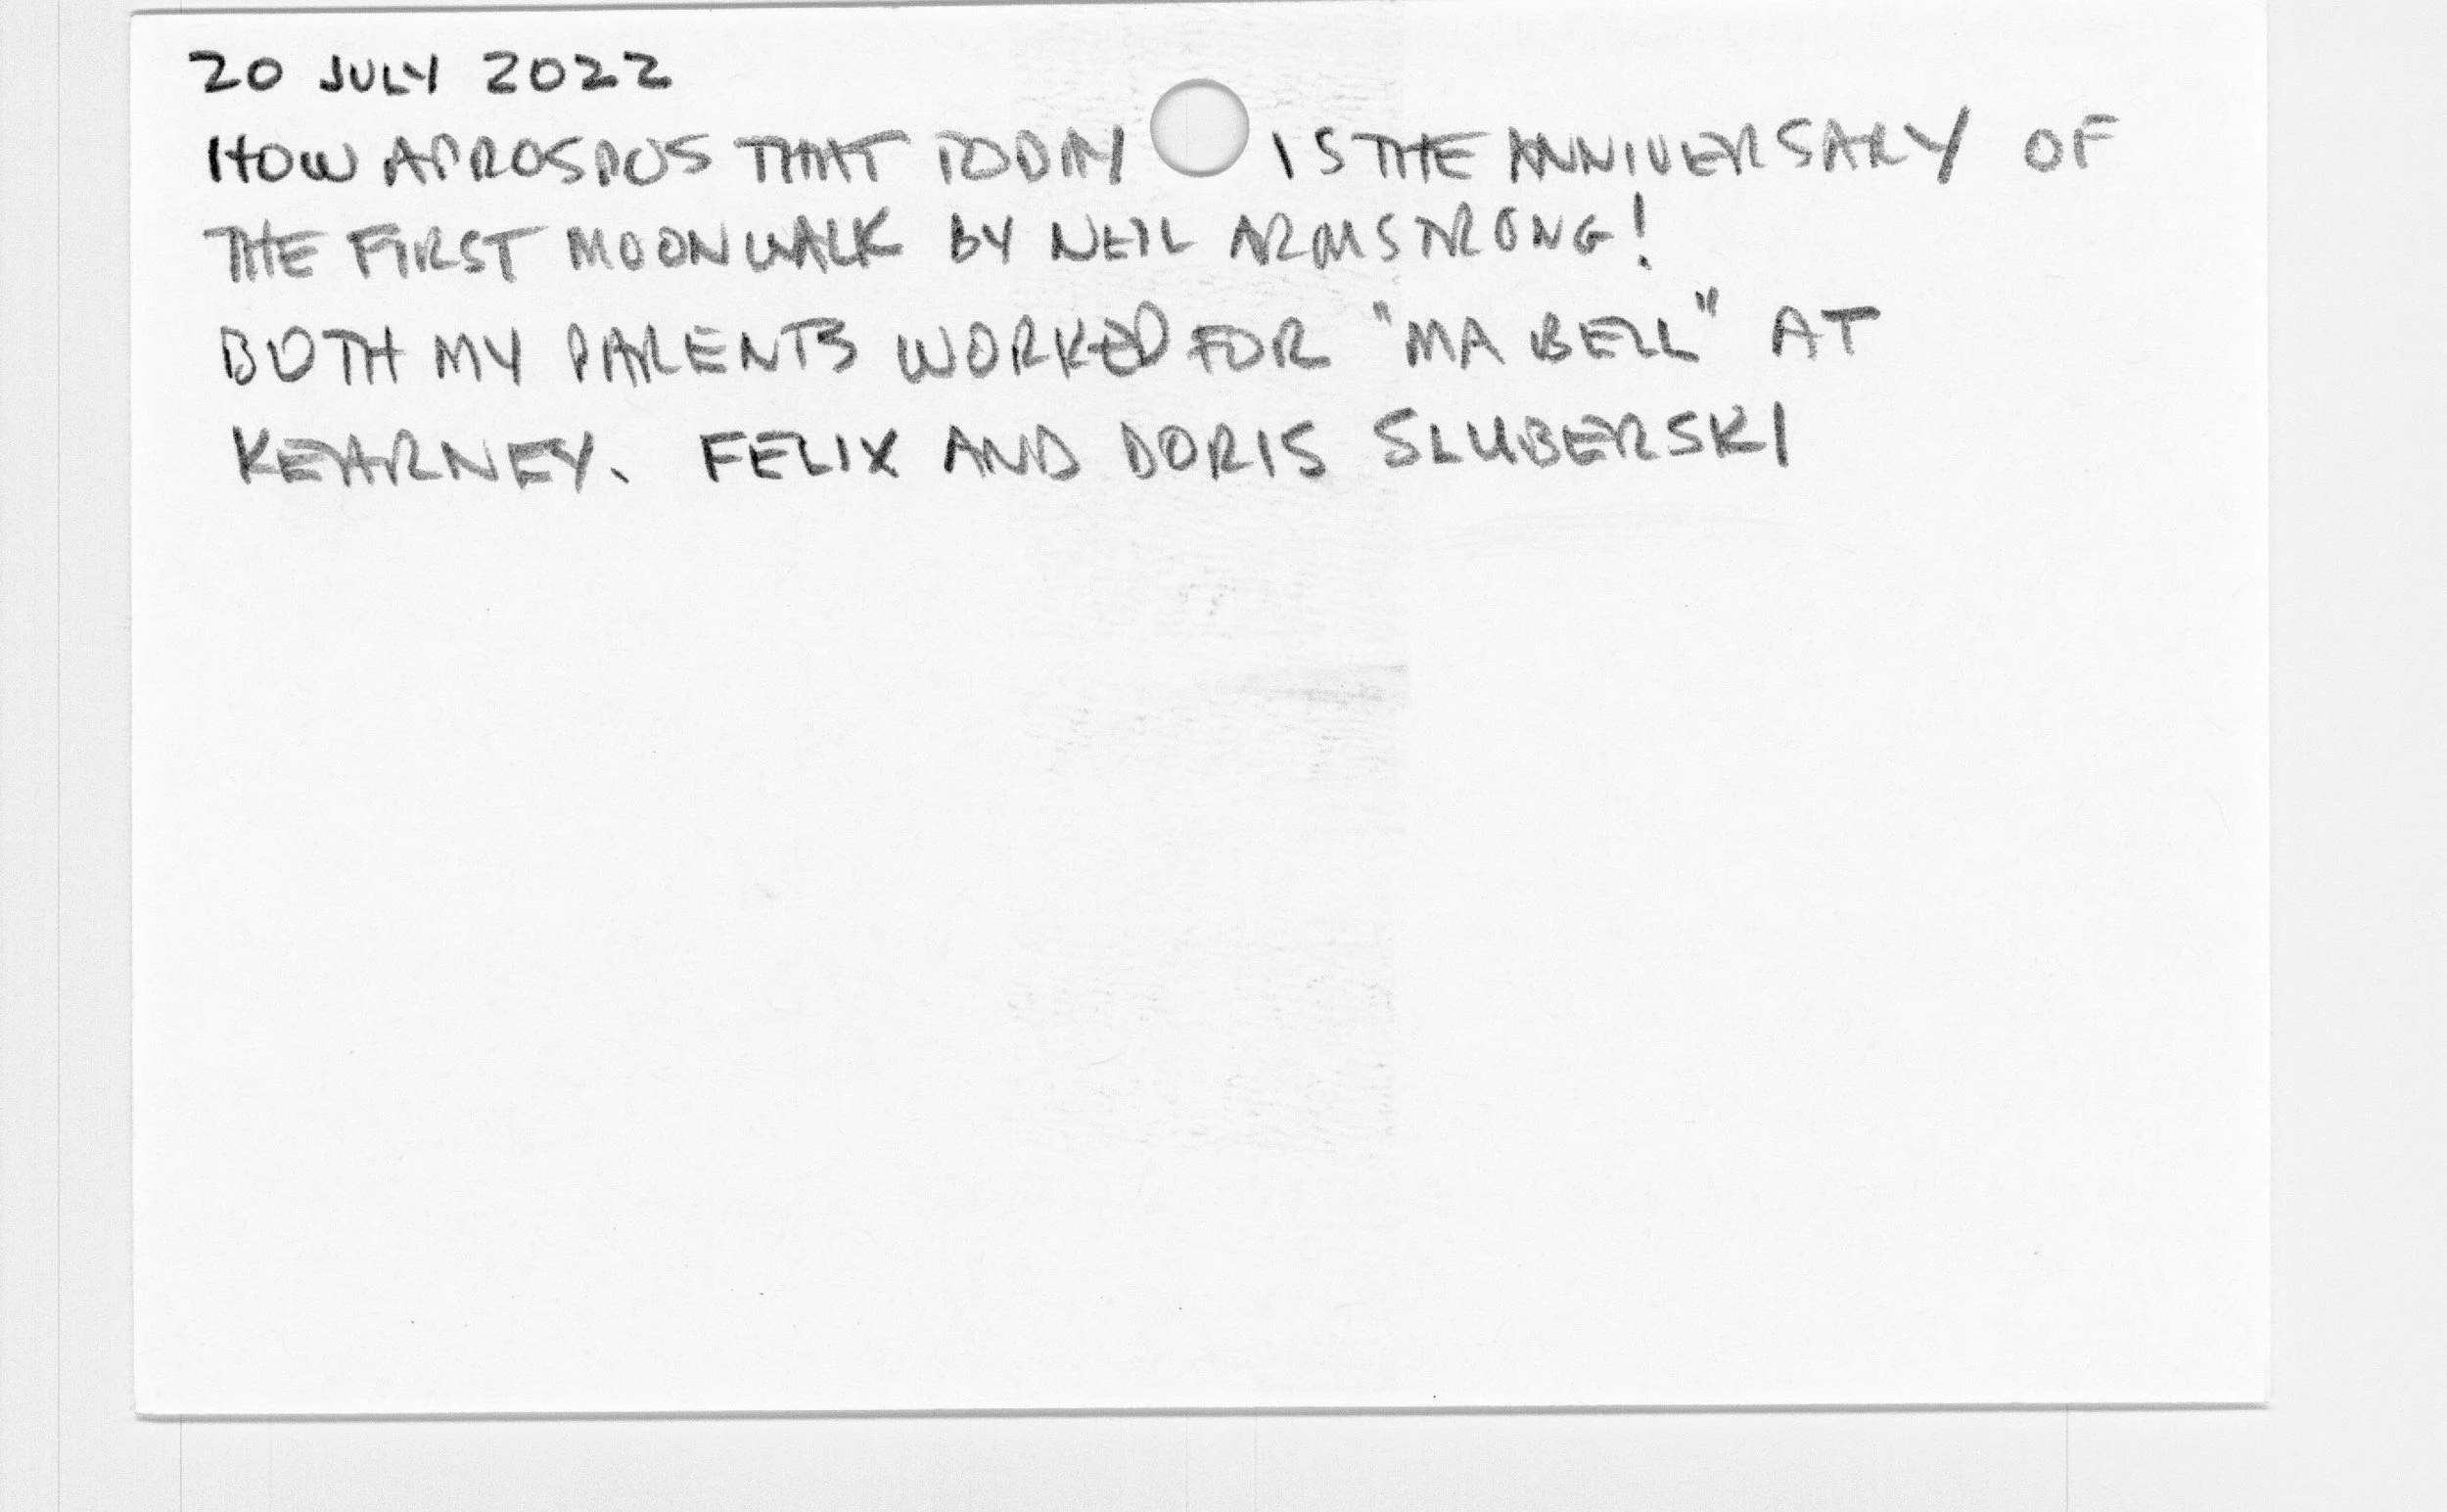 20 JULY 2022
HOW APROSPOS THAT TODAY IS THE ANNIVERSARY OF
THE FIRST MOONWALK BY NEIL ARMSTRONG!
BOTH MY PARENTS WORKED FOR "MA BELL" AT
KEARNEY. FELIX AND DORIS SLUBERSKI